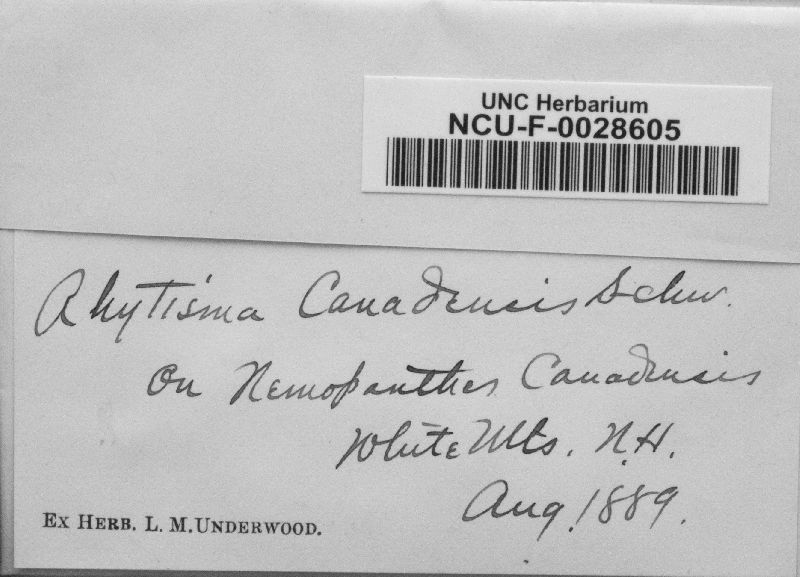 UNC Herbarium
NCU-F-0028605
Rhytisma Canadensis Schw.
On Nemopanthes Canadensis
White Mts. N.H.
Aug. 1889.
EX HERB. L. M. UNDERWOOD.